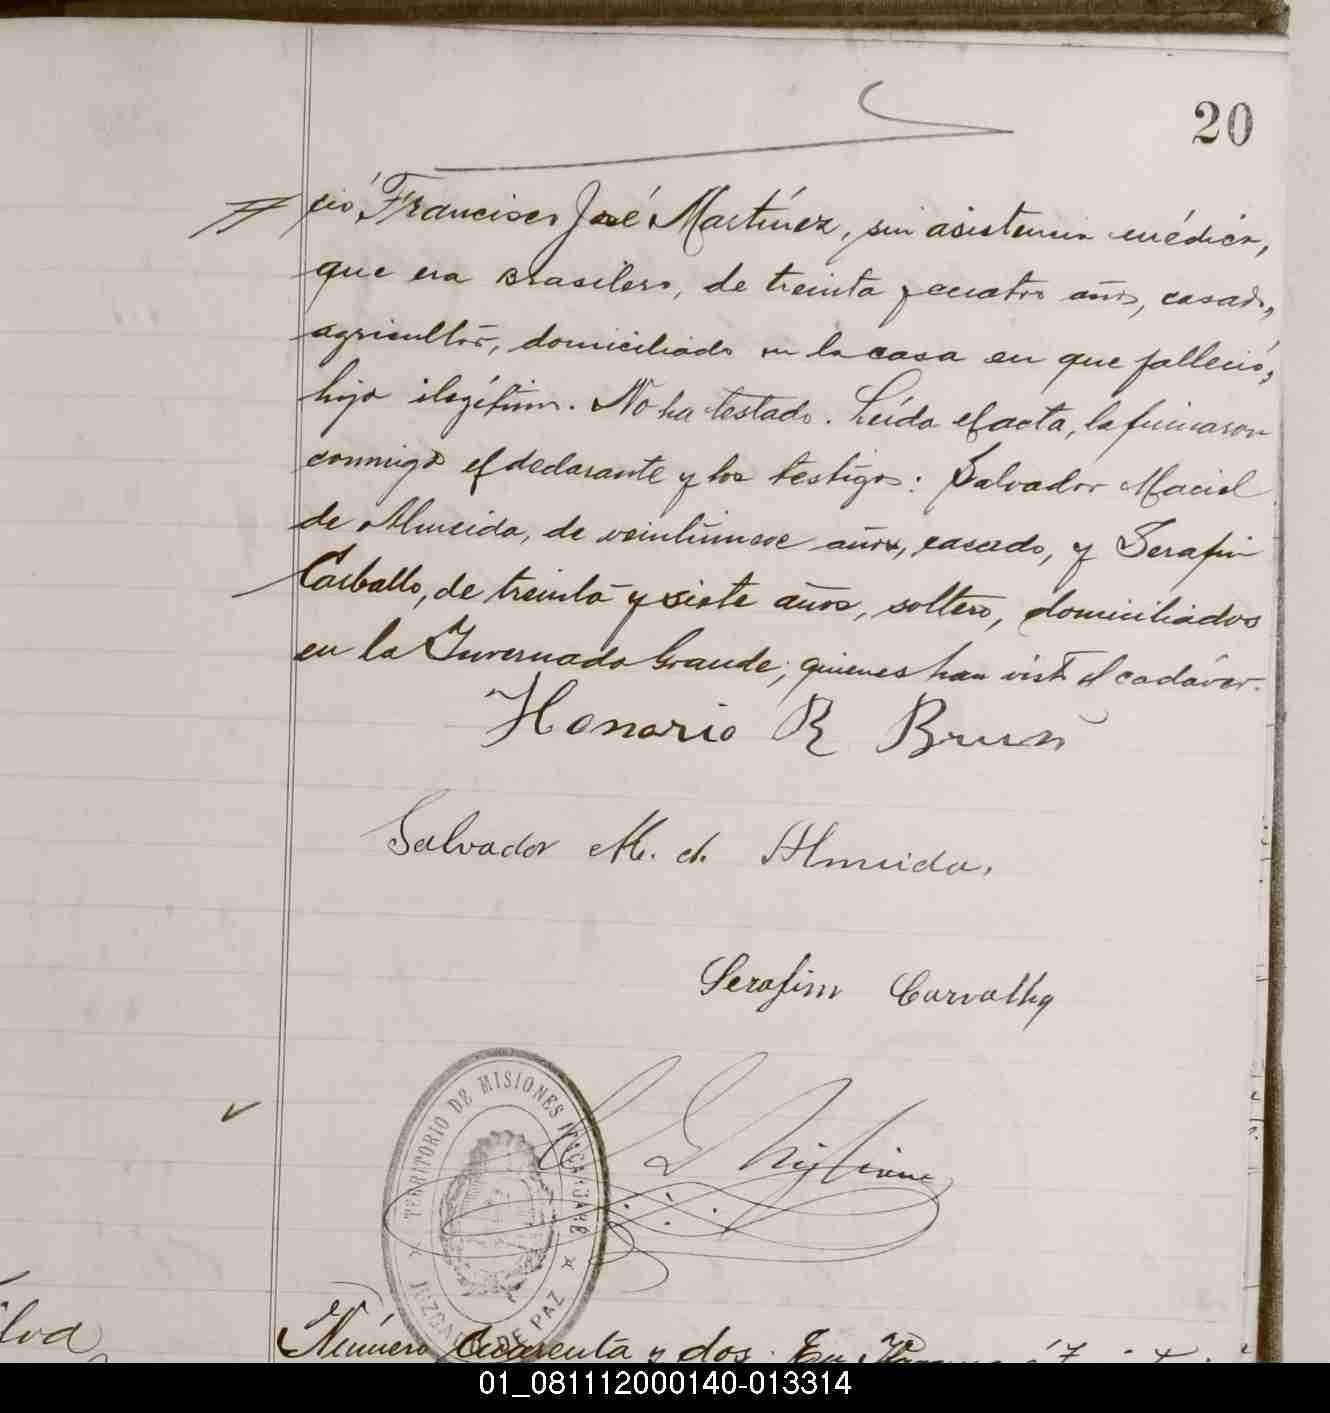 20
ció Francisco José Martínez, sin asistencia médica,
que era Brasilero, de treinta y cuatro años, casado,
agricultor, domiciliado en la casa en que falleció,
hijo ilegítimo. No ha testado. Leída el acta, la firmaron
conmigo el declarante y los testigos: Salvador Maciel
de Almeida, de veintinueve años, casado, y Serafin
Carballo, de treinta y siete años, soltero, domiciliados
en la Invernada Grande; quienes han visto el cadáver.
Honorio R Brun
Salvador M. d. Almeida.
Serafim Carvalho
TERRITORIO DE MISIONES
JUZGADO DE PAZ
ilva
Número Cuarenta y dos. En
01_081112000140-013314